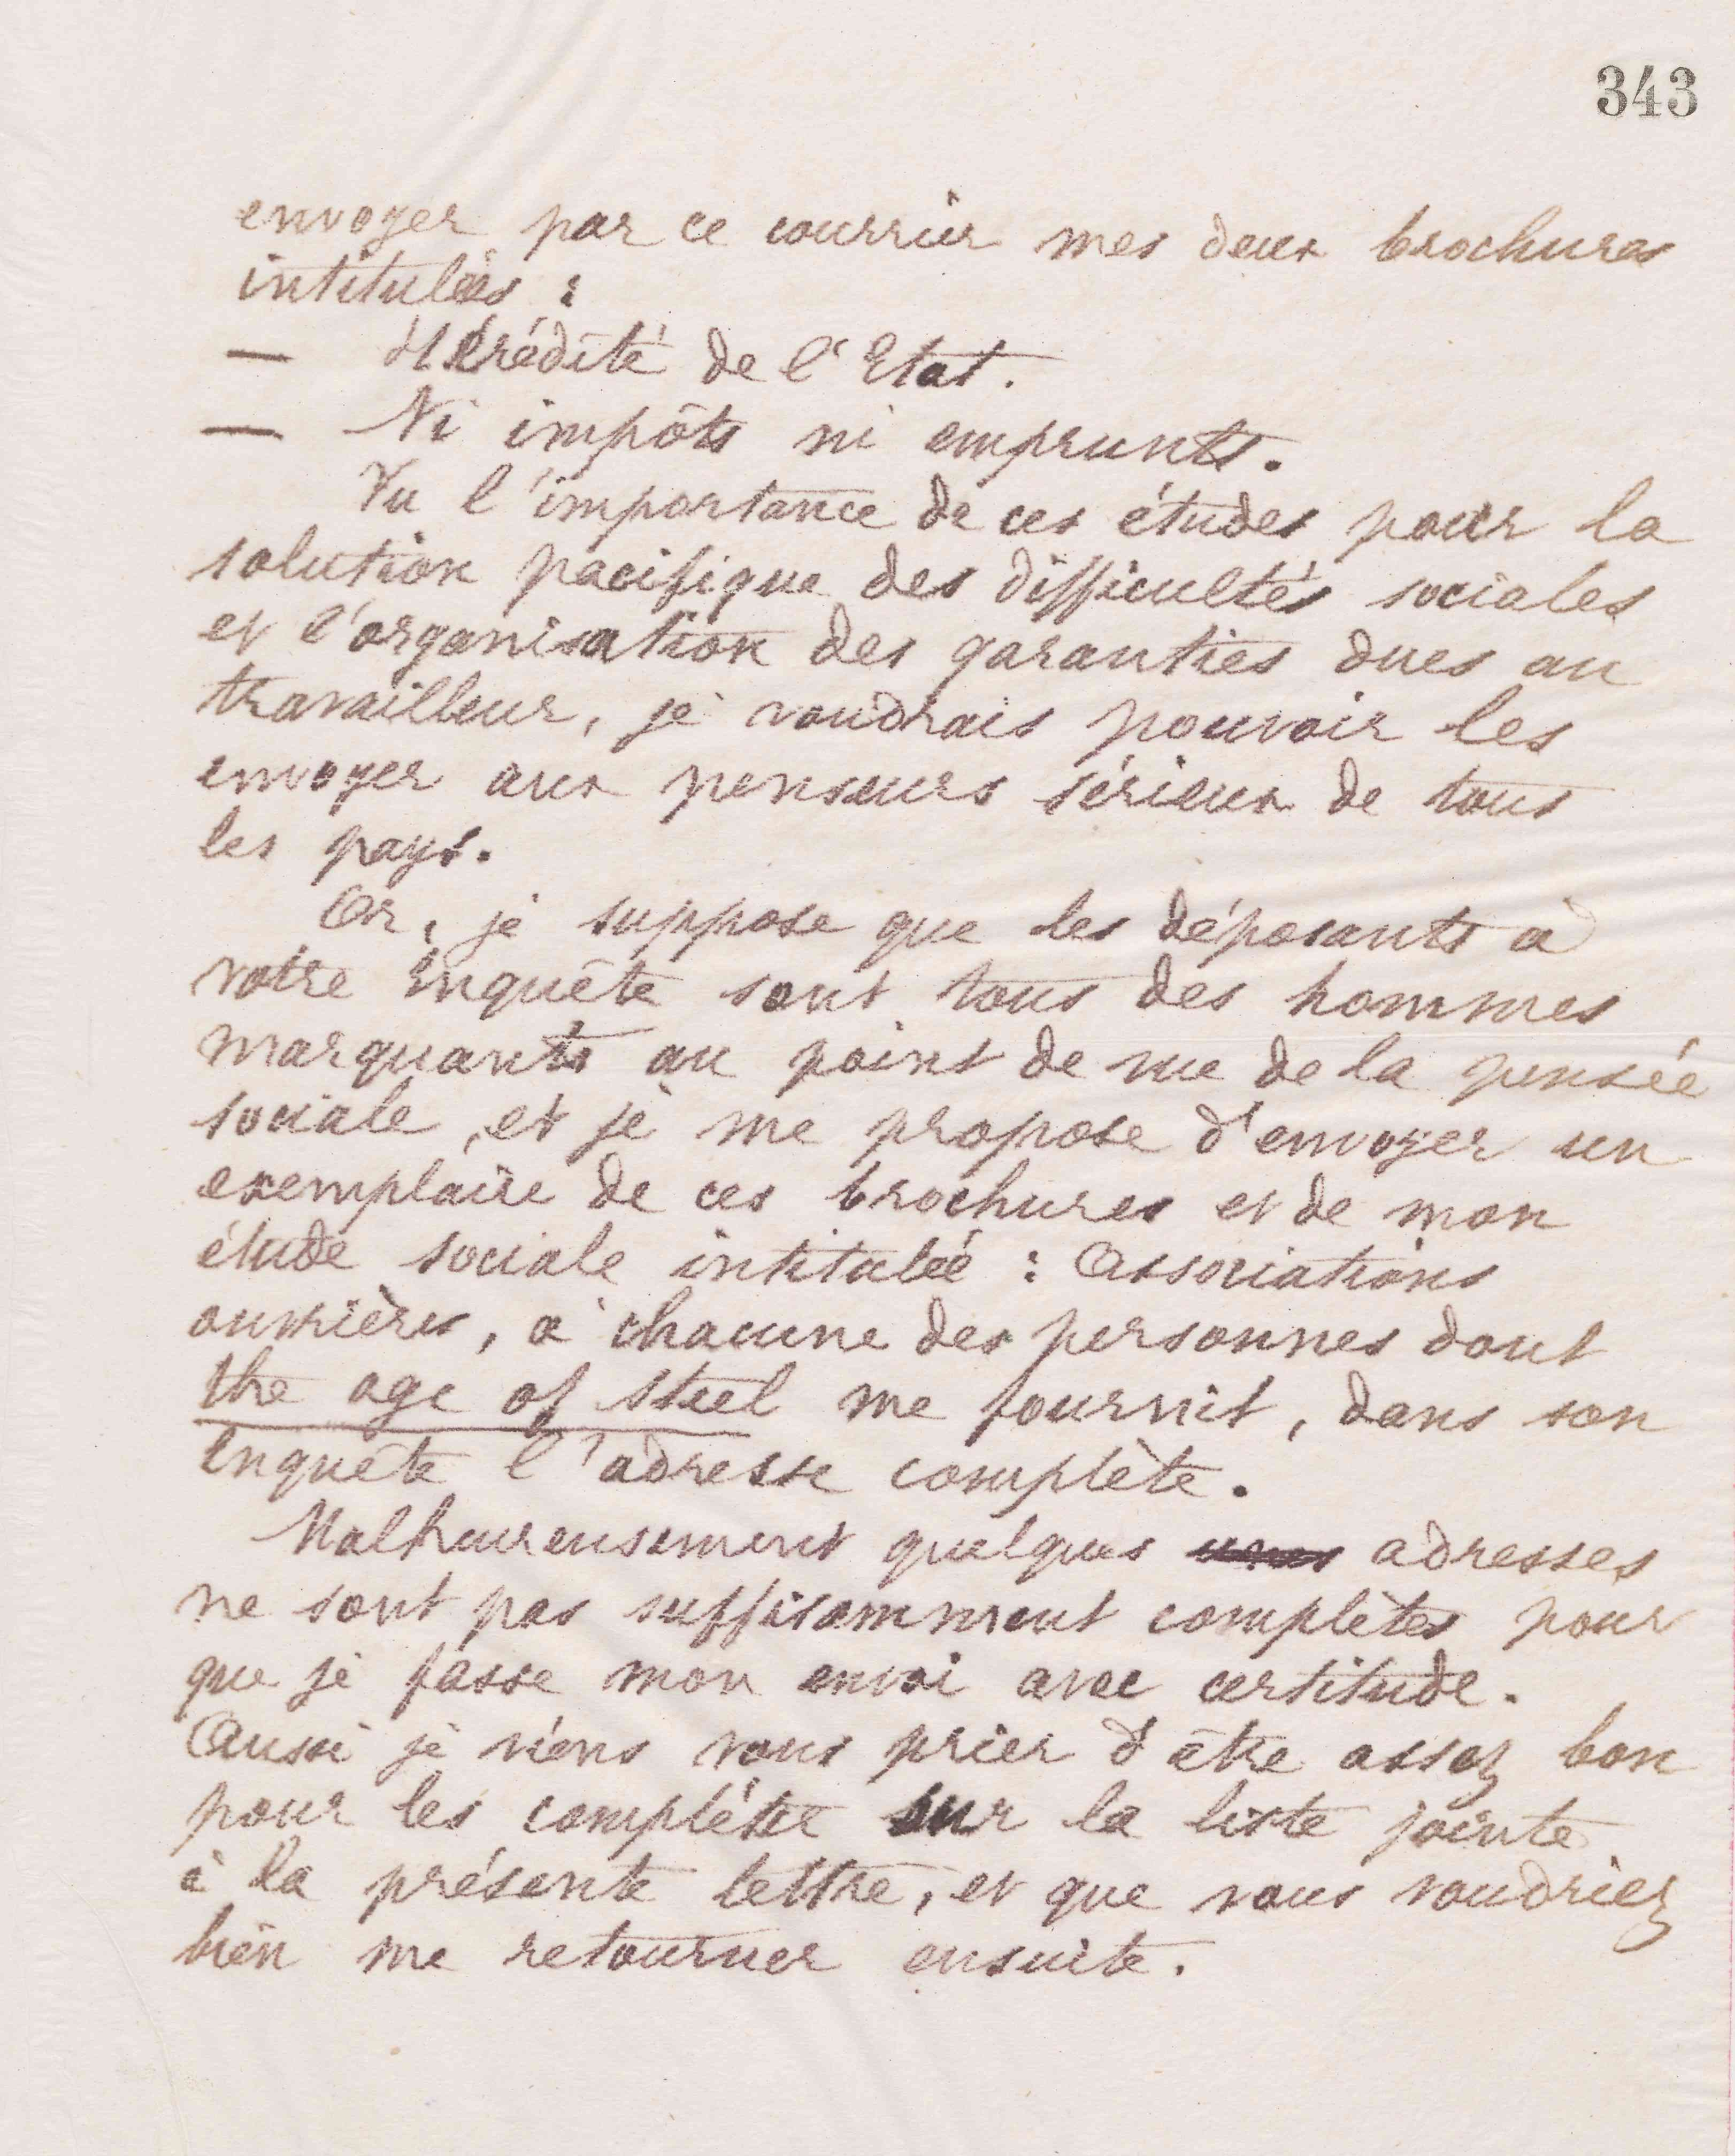 343
envoyer par ce courrier mes deux brochures
intitulées :
— Hérédité de l'Etat.
— Ni impôts ni emprunts.
Vu l'importance de ces études pour la
solution pacifique des difficultés sociales
et l'organisation des garanties dues au
travailleur, je voudrais pouvoir les
envoyer aux penseurs sérieux de tous
les pays.
Or, je suppose que les déposants à
votre enquête sont tous des hommes
marquants au point de vue de la pensée
sociale, et je me propose d'envoyer un
exemplaire de ces brochures et de mon
étude sociale intitulée : Associations
ouvrières, à chacune des personnes dont
the age of steel me fournit, dans son
enquête l'adresse complète.
Malheureusement quelques unes adresses
ne sont pas suffisamment complètes pour
que je fasse mon envoi avec certitude.
Aussi je viens vous prier d'être assez bon
pour les compléter sur la liste jointe
à la présente lettre, et que vous voudriez
bien me retourner ensuite.